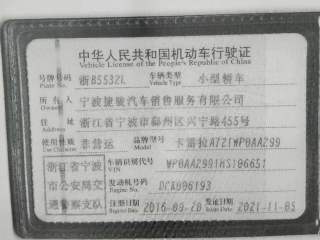 中华人民共和国机动车行驶证
Vehicle License of the People's Republic of China
号牌号码 浙B5532L 车辆类型 小型轿车
Plate No. Vehicle Type
所有人 宁波捷骏汽车销售服务有限公司
Owner
住址 浙江省宁波市鄞州区兴宁路455号
Address
使用性质 非营运 品牌型号 卡雷拉A721WP0AA299
Use Character Model
浙江省宁 车辆识别代号 WP0AA2991HS106651
波市公安局交 VIN
发动机号码 DCK006193
Engine No.
通警察支队 注册日期 2016-09-26 发证日期 2021-11-05
Register Date Issue Date